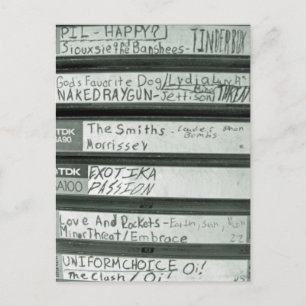 PIL - HAPPY?
Siouxsie and the Banshees - TINDERBOX
God's Favorite Dog / Lydia
NAKED RAYGUN - Jettison
TDK
SA90
The Smiths - Louder than Bombs
Morrissey
TDK
SA100
EXOTIKA
PASSION
Love And Rockets - Earth, Sun, Moon
Minor Threat / Embrace
UNIFORM CHOICE Oi!
The Clash / Oi!